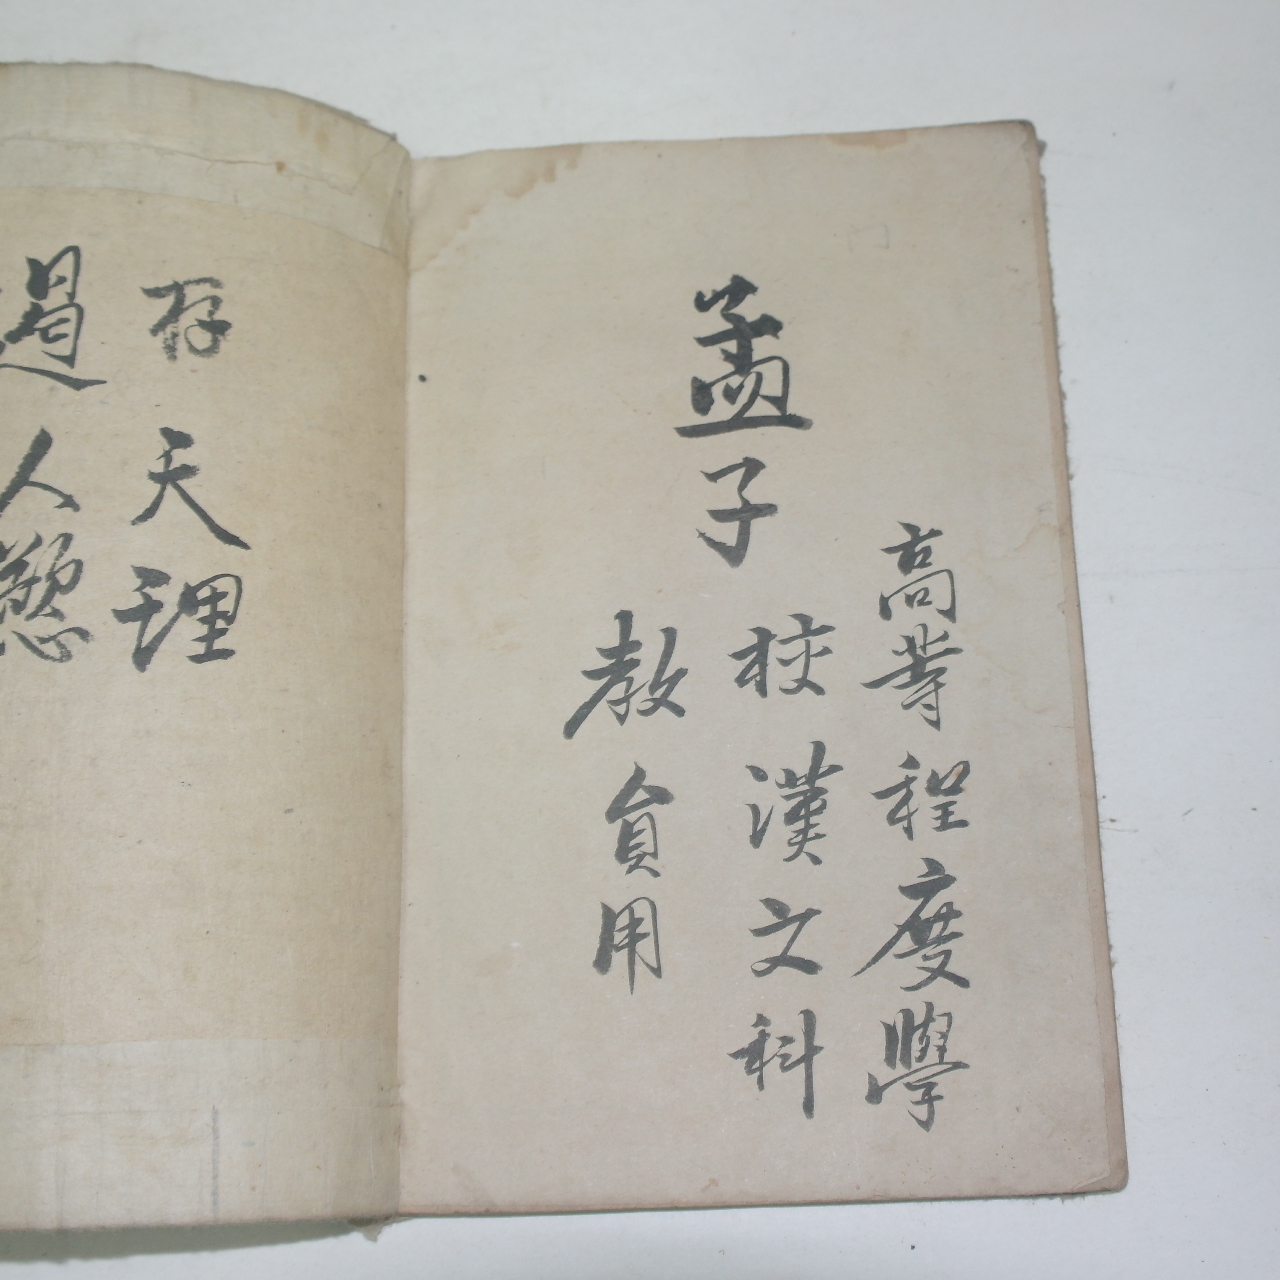 高等程度學
孟子
校漢文科
教員用
存天理
遏人慾